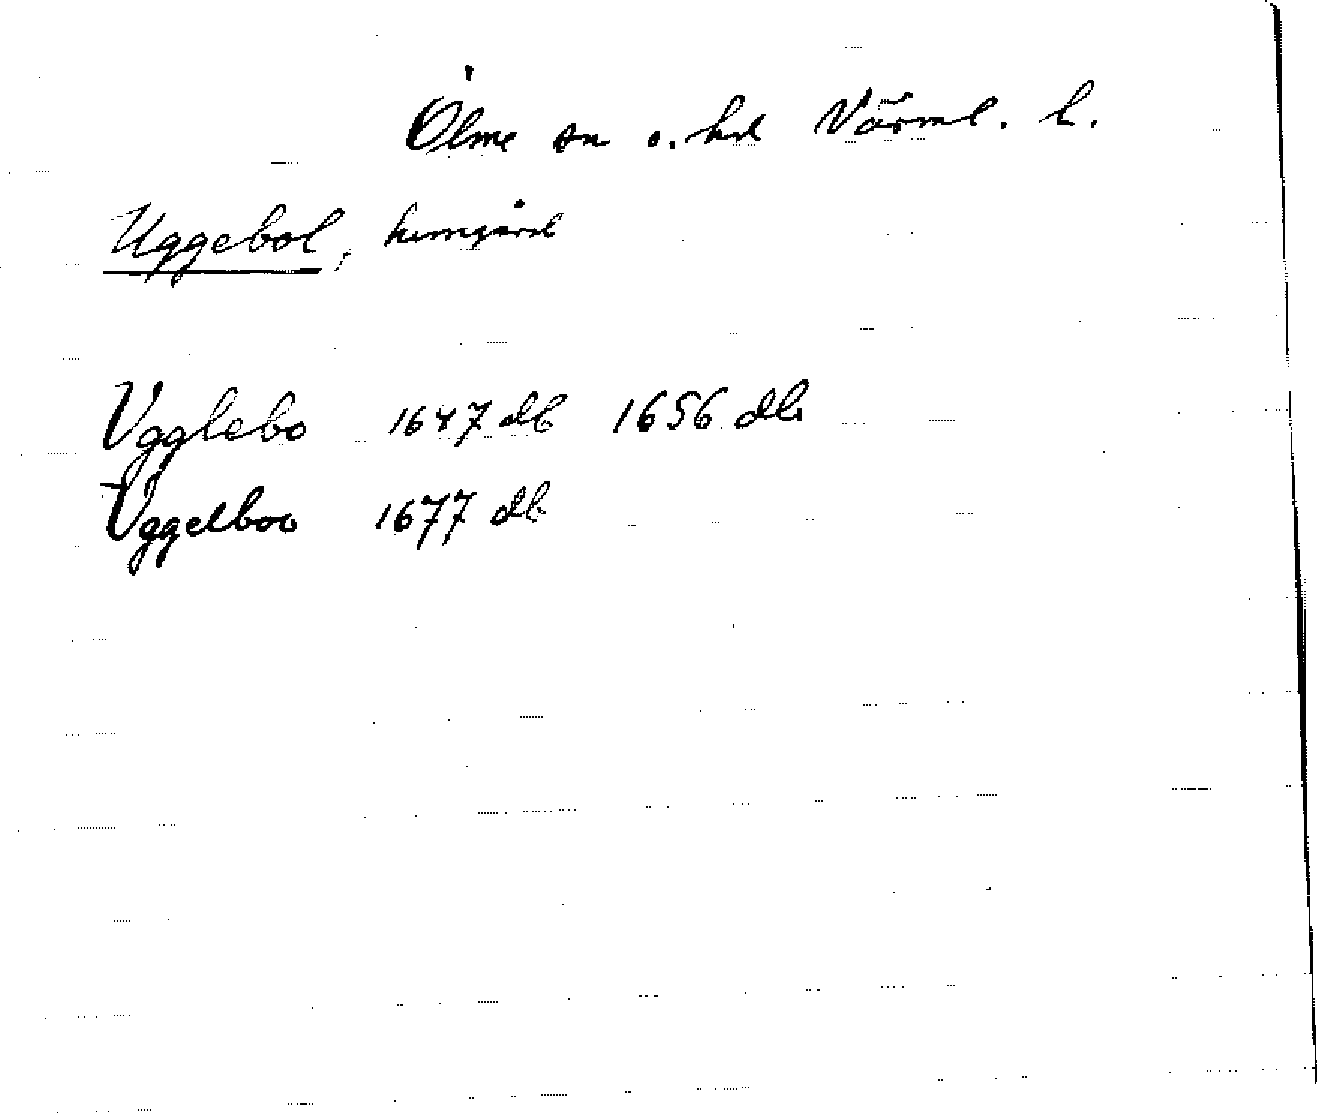 Ölme sn o. hd Värml. l.
Uggebol, hemgård
Vgglebo 1647 db 1656 db
Vggelboo 1677 db